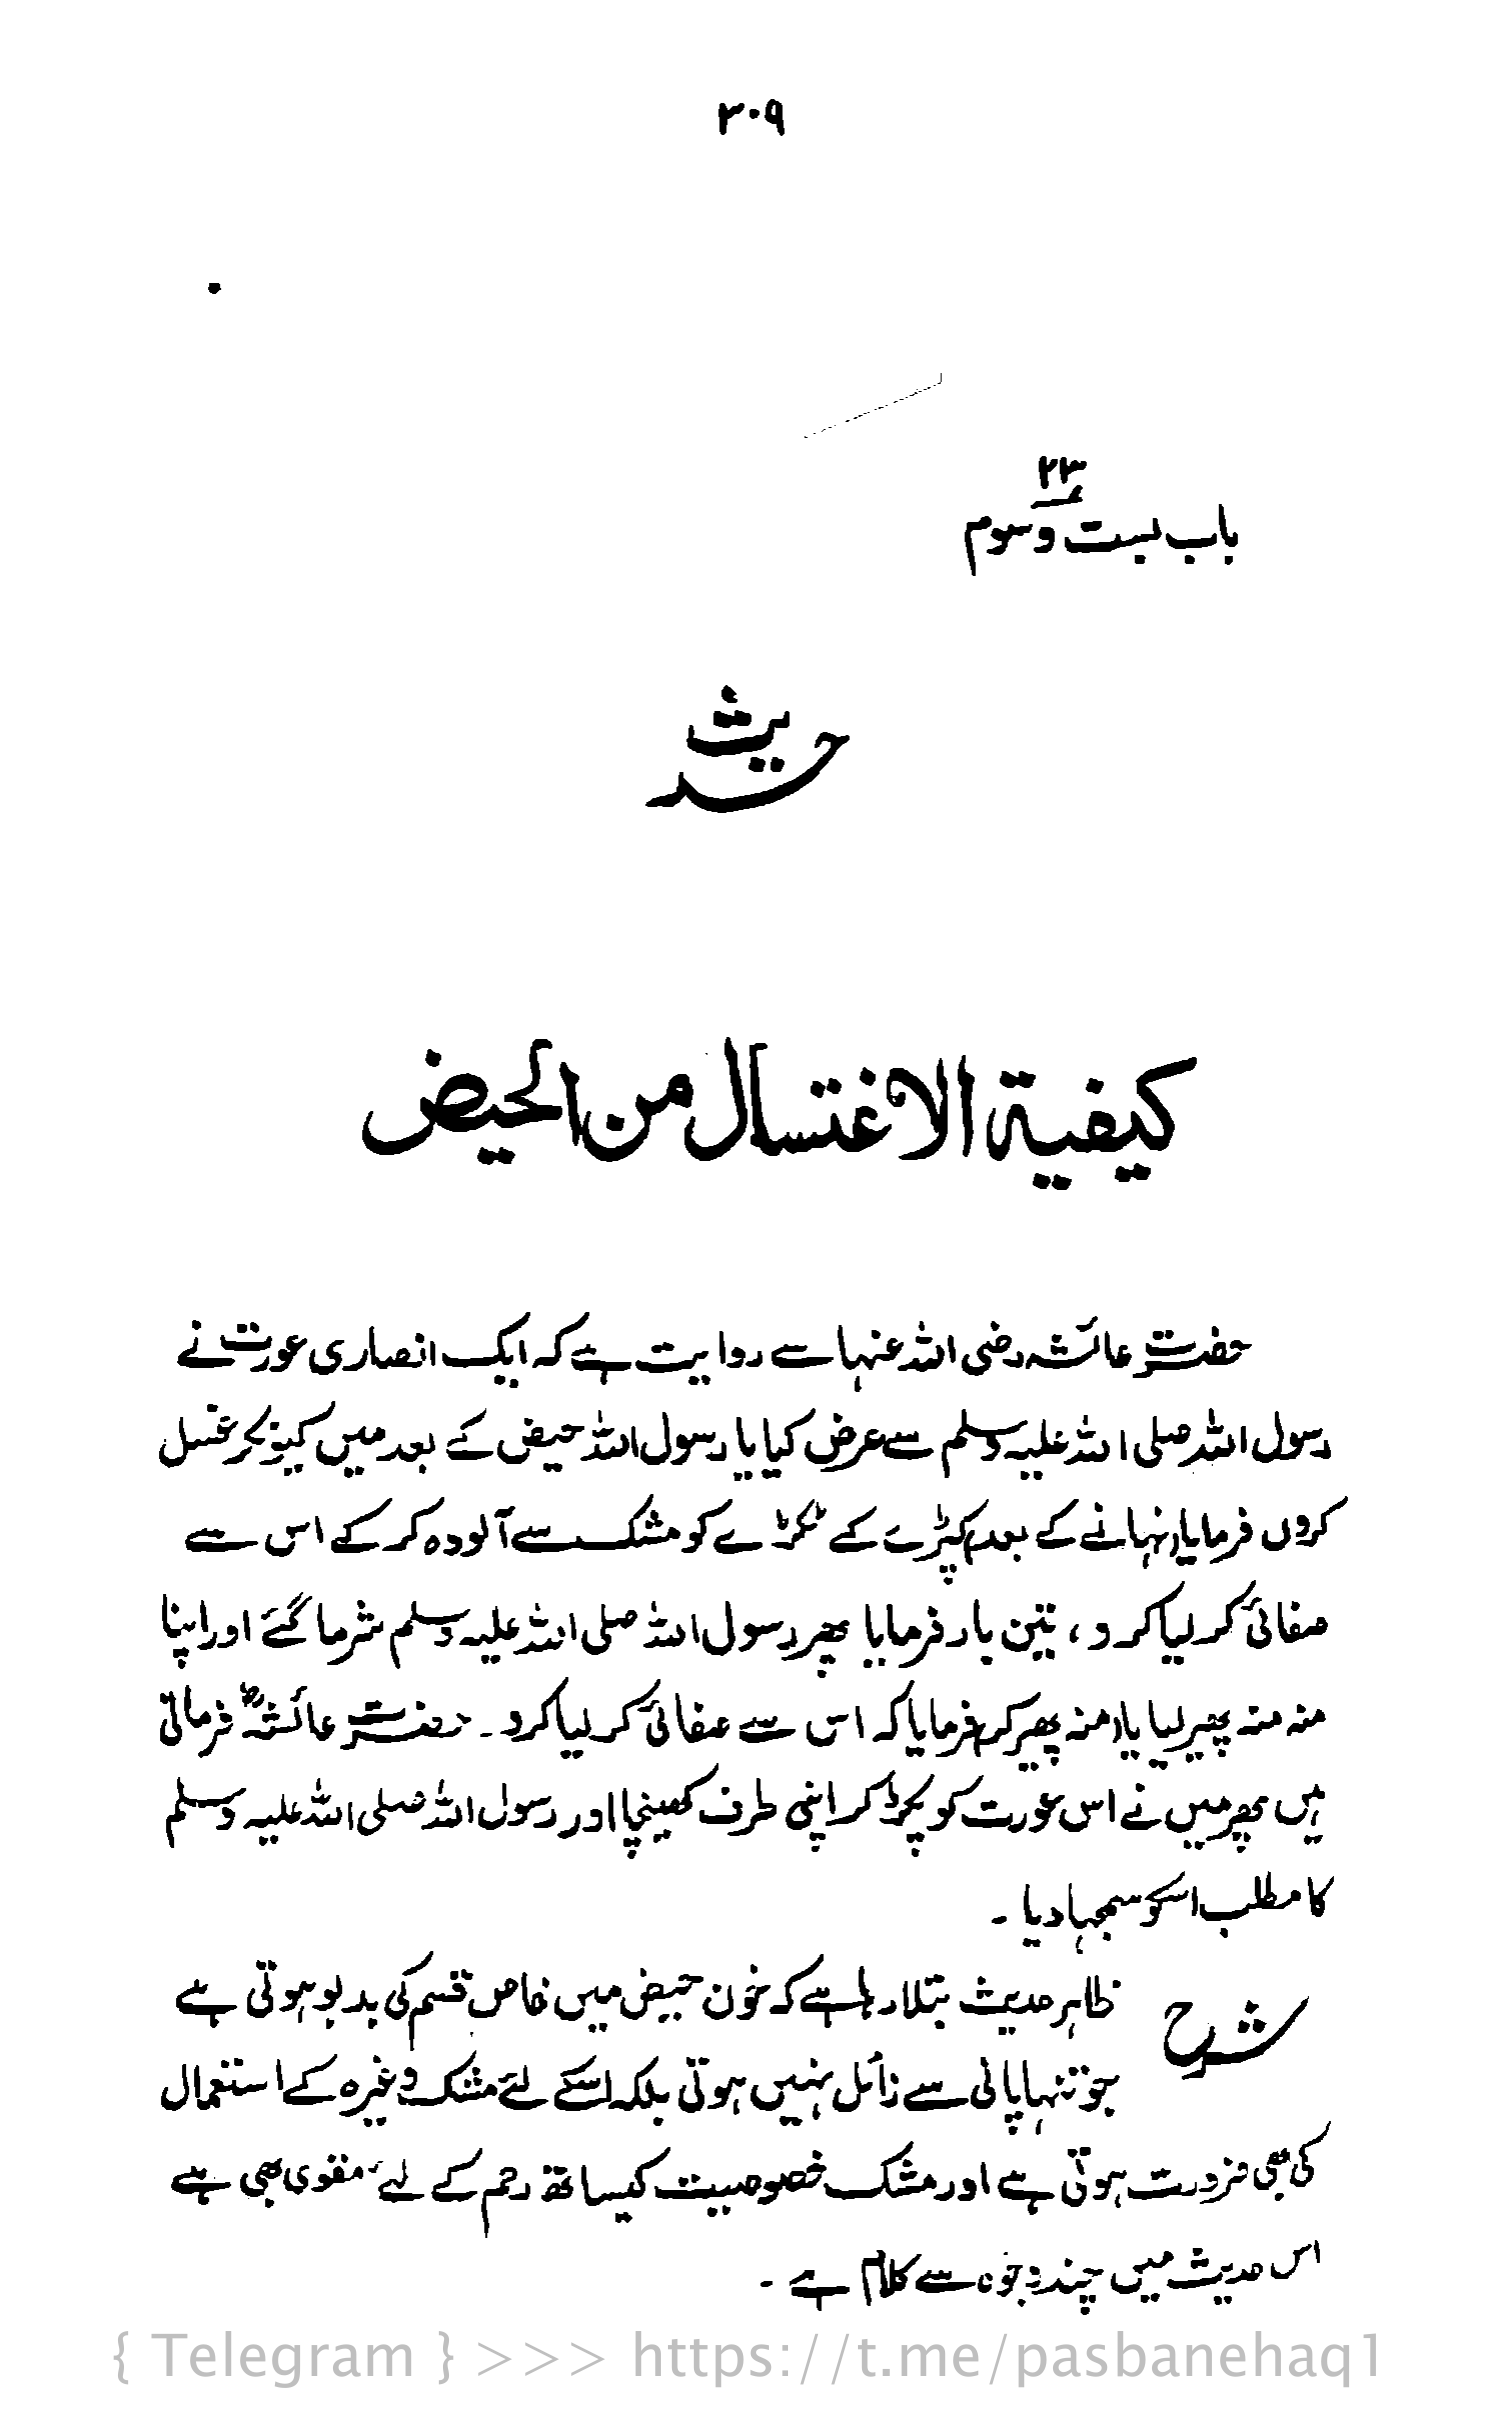 ۳۰۹
۲۳
باب بست و سوم
حدیث
کیفیة الاغتسال من الحیض
حضرت عائشہ رضی اللہ عنہا سے روایت ہے کہ ایک انصاری عورت نے
رسول اللہ صلی اللہ علیہ وسلم سے عرض کیا یا رسول اللہ حیض کے بعد میں کیونکر غسل
کروں فرمایا (نہانے کے بعد) کپڑے کے ٹکڑے کو مشک سے آلودہ کر کے اس سے
صفائی کر لیا کرو، تین بار فرمایا پھر رسول اللہ صلی اللہ علیہ وسلم شرما گئے اور اپنا
منہ منہ پھیر لیا یا (منہ پھیر کر) فرمایا کہ اس سے صفائی کر لیا کرو۔ حضرت عائشہؓ فرماتی
ہیں پھر میں نے اس عورت کو پکڑ کر اپنی طرف کھینچا اور رسول اللہ صلی اللہ علیہ وسلم
کا مطلب اسکو سمجہا دیا۔
شرح ظاہر حدیث بتلا رہا ہے کہ خون حیض میں خاص قسم کی بدبو ہوتی ہے
جو تنہا پانی سے زائل نہیں ہوتی بلکہ اسکے لئے مشک وغیرہ کے استعمال
کی بھی ضرورت ہوتی ہے اور مشک خصوصیت کیساتھ رحم کے لئے مقوی بھی ہے
اس حدیث میں چند وجوہ سے کلام ہے۔
{ Telegram } >>> https://t.me/pasbanehaq1